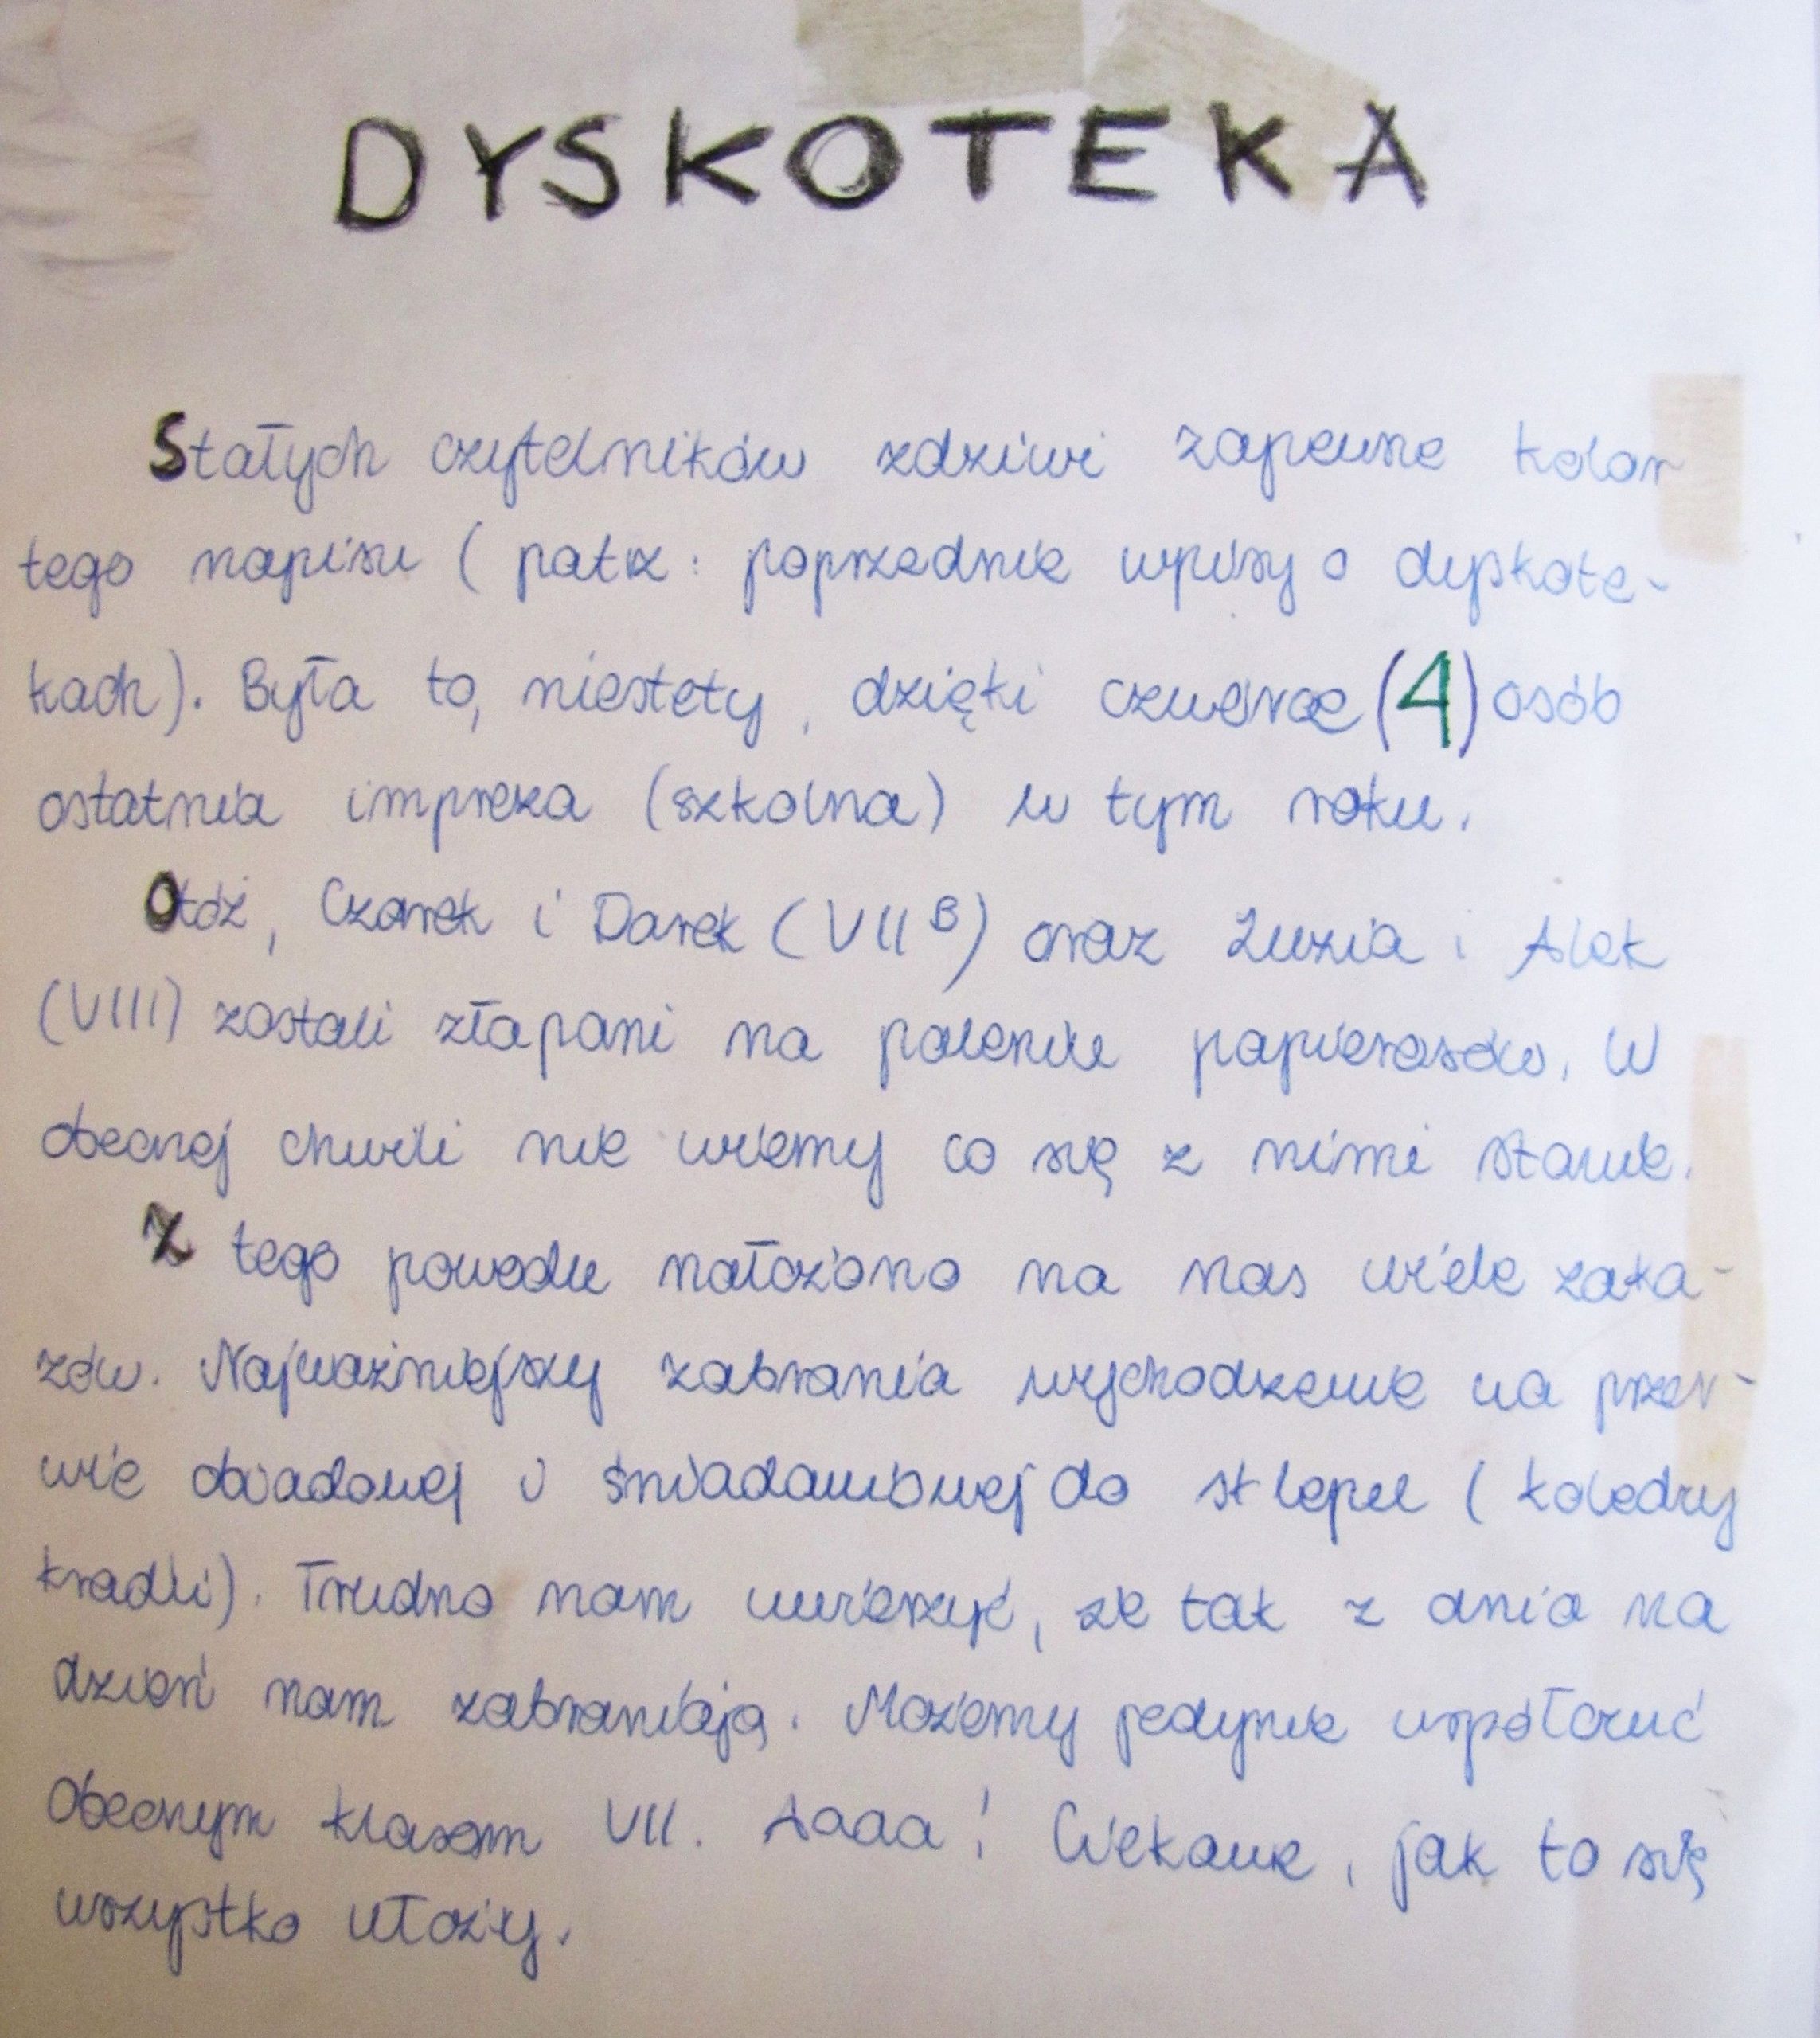 DYSKOTEKA
Stałych czytelników zdziwi zapewne kolor
tego napisu (patrz: poprzednie wpisy o dyskote-
kach). Była to, niestety, dzięki czwórce (4) osób
ostatnia impreza (szkolna) w tym roku.
Otóż, Czarek i Darek (VII B) oraz Luzia i Alek
(VIII) zostali złapani na paleniu papierosów. W
obecnej chwili nie wiemy co się z nimi stanie.
Z tego powodu nałożono na nas wiele zaka-
zów. Najważniejszy zabrania wychodzenie na przer-
wie obiadowej i śniadaniowej do sklepu (kolędy
kradli). Trudno nam uwierzyć, że tak z dnia na
dzień nam zabraniają. Możemy jedynie współczuć
Obecnym klasom VII. Aaaa! Ciekawe, jak to się
wszystko ułoży.